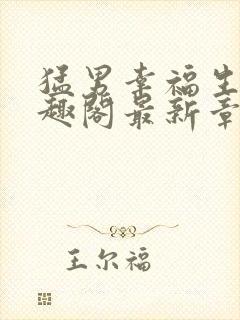 猛男幸福生
趣阁最新章
王尔福